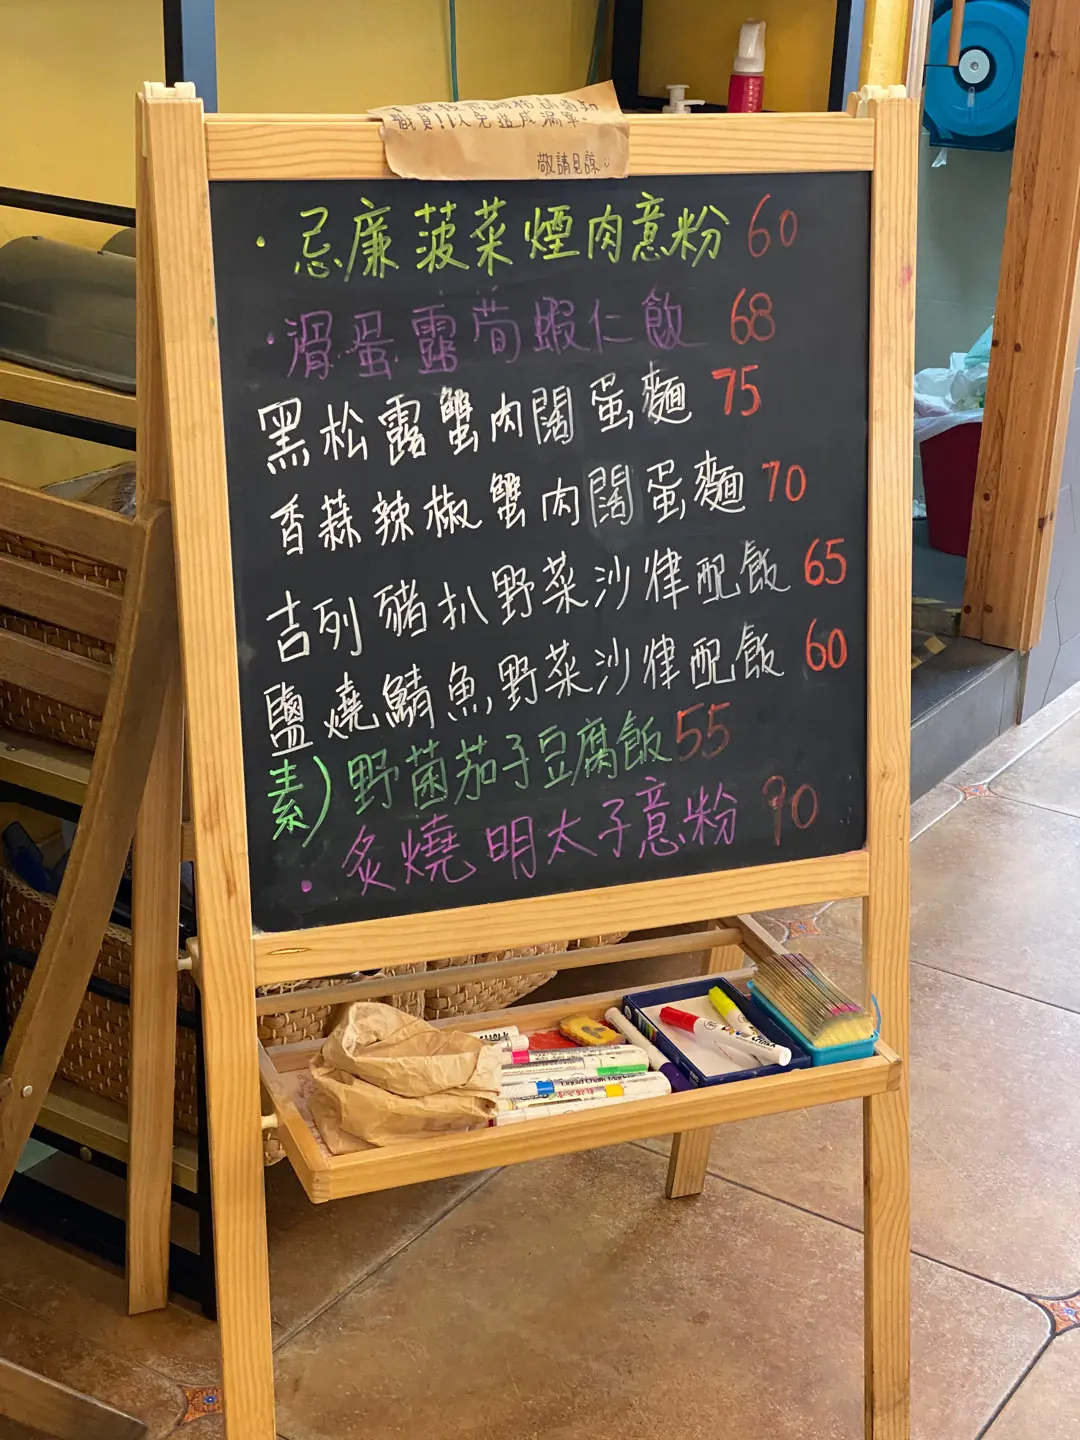 職員!以免造成漏單。
敬請見諒
·忌廉菠菜煙肉意粉 60
·滑蛋露荀蝦仁飯 68
黑松露蟹肉闊蛋麵 75
香蒜辣椒蟹肉闊蛋麵 70
吉列豬扒野菜沙律配飯 65
鹽燒鯖魚野菜沙律配飯 60
素)野菌茄子豆腐飯 55
·炙燒明太子意粉 90
Liquid Chalk Marker